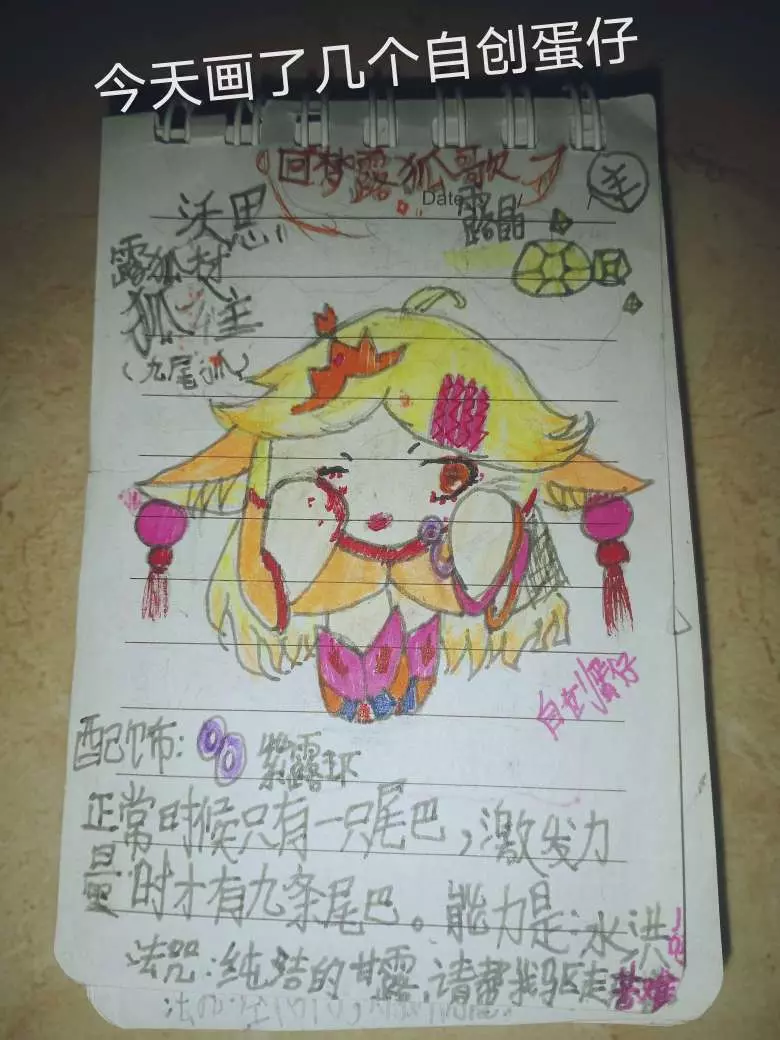 今天画了几个自创蛋仔
回梦露狐歌
Date
沃思
露晶
露狐村
狐主
(九尾狐)
回
自创蛋仔
配饰:
紫露环
正常时候只有一只尾巴,激发力
量时才有九条尾巴。能力是:水洪
法咒:纯洁的甘露,请帮我驱走苦难